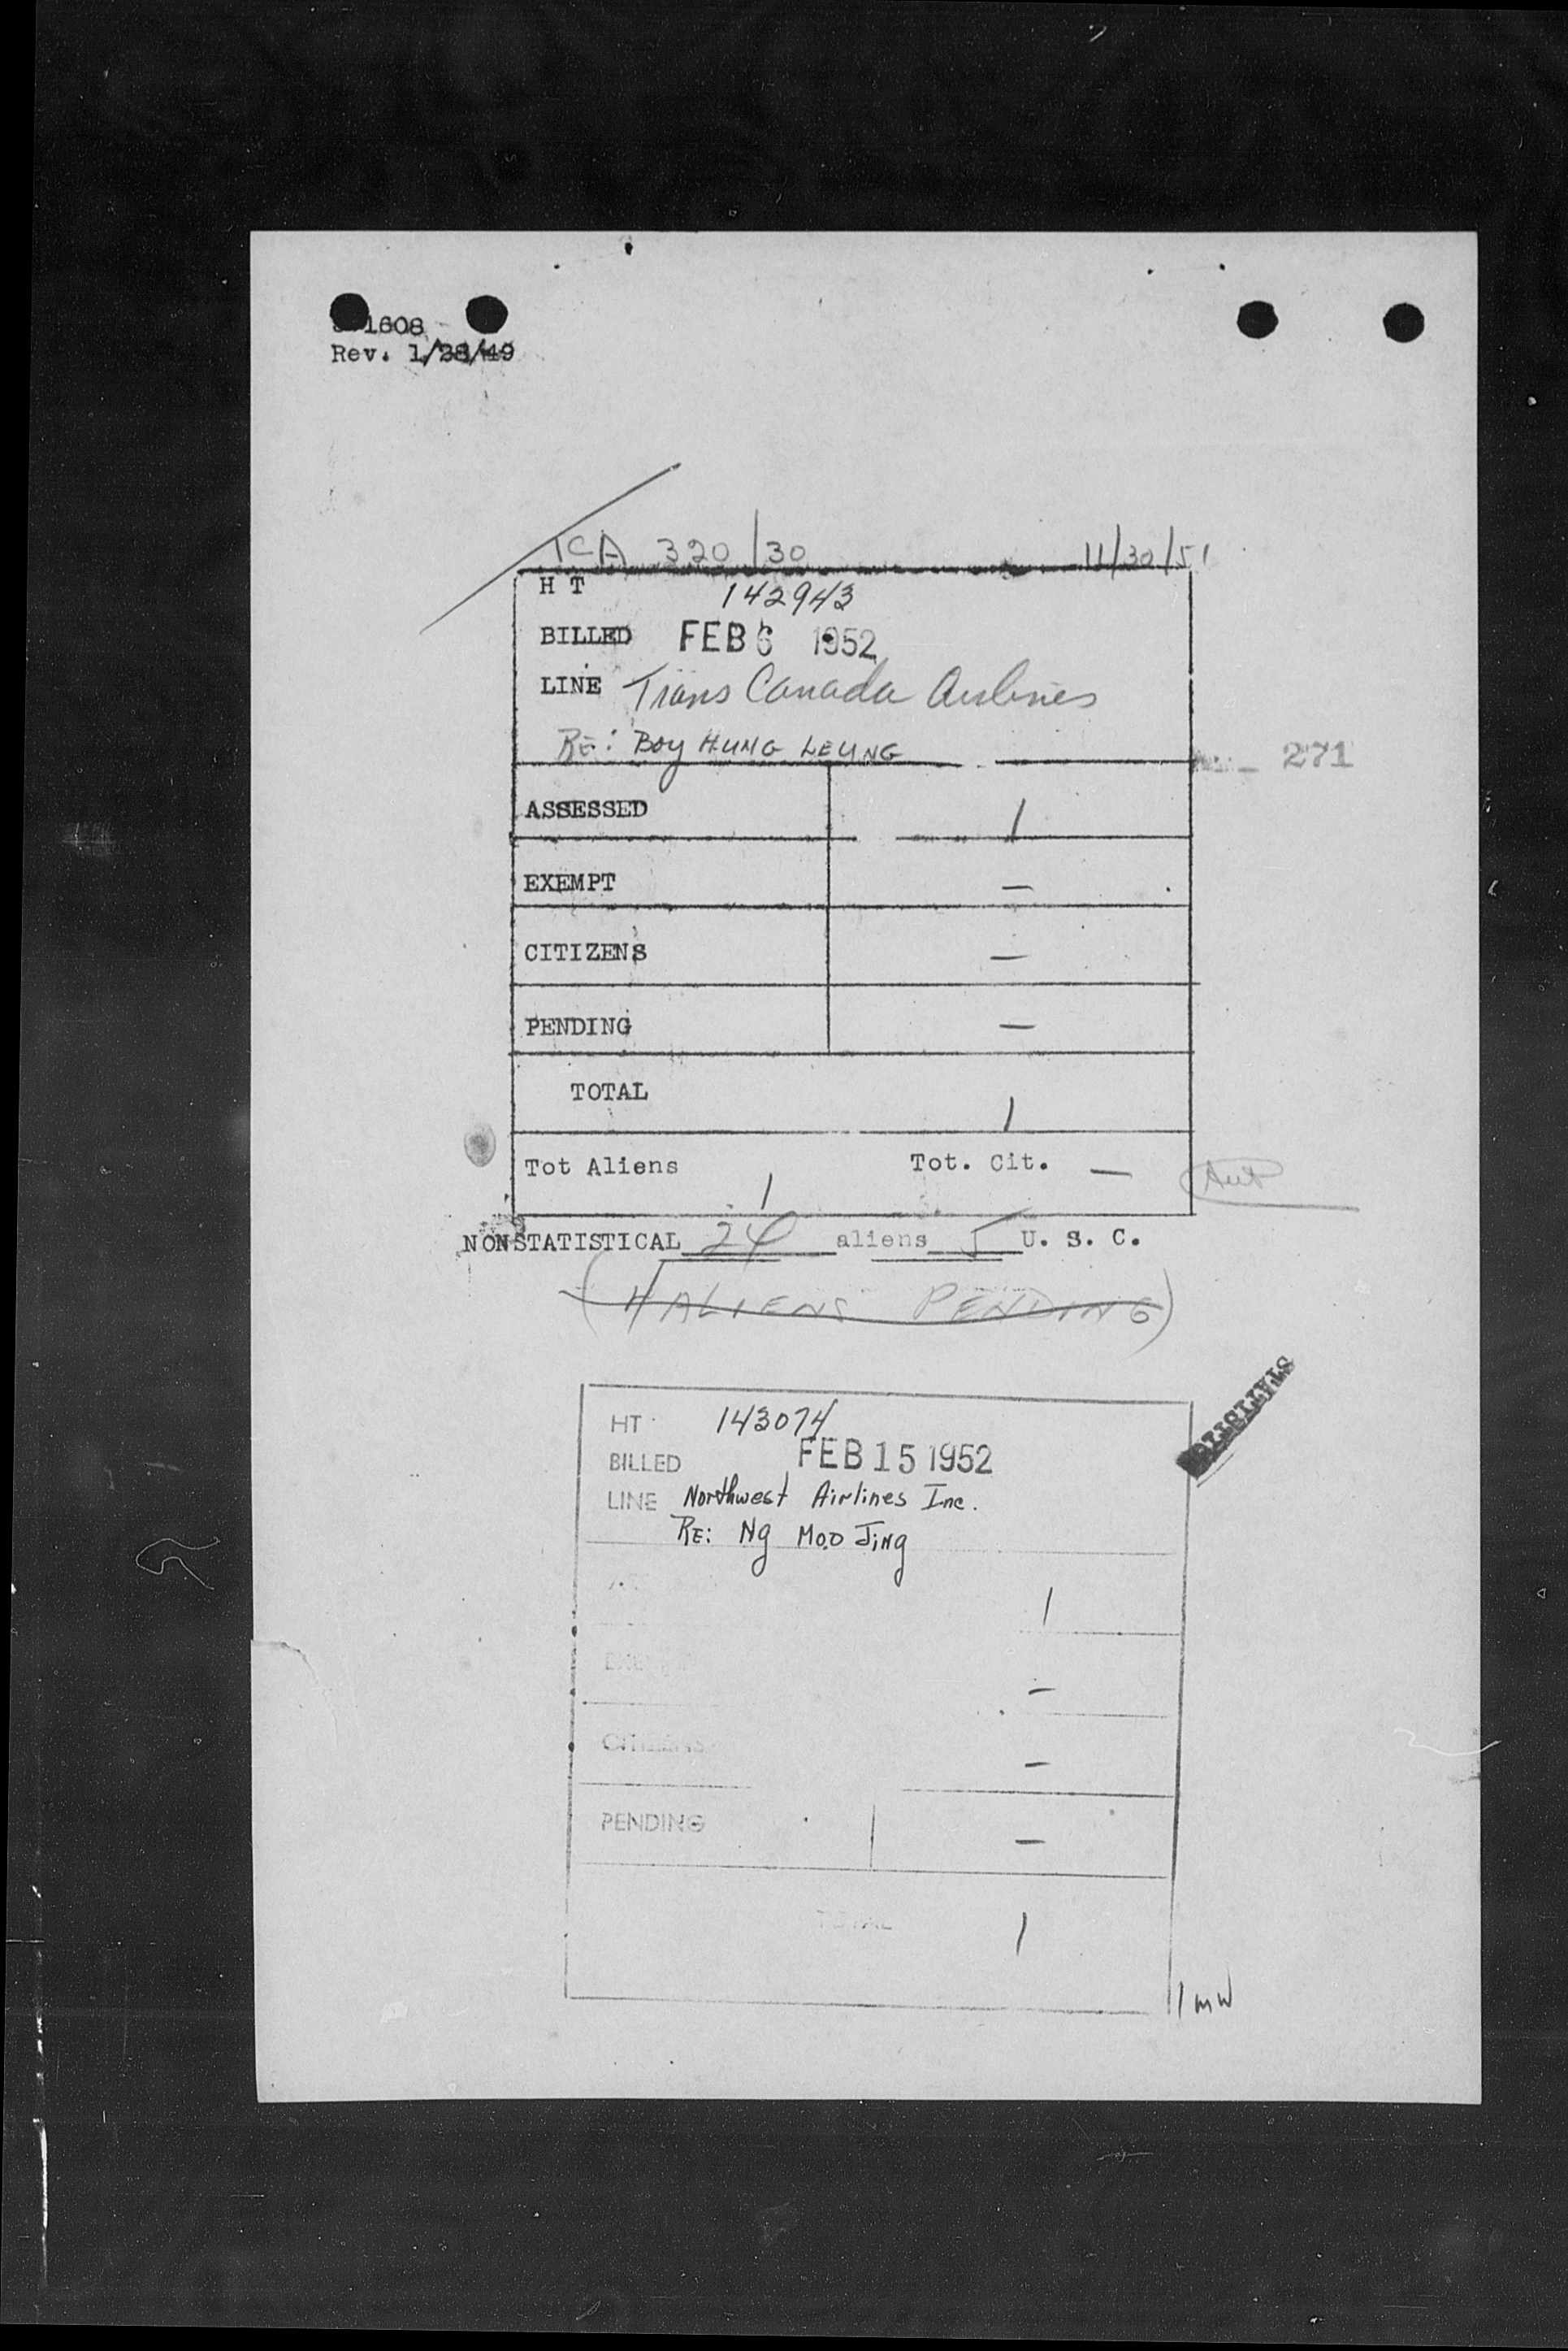 1608
Rev. 1/28/49
TCA 320/30 11/30/51
H T 142943
BILLED FEB 6 1952
LINE Trans Canada Airlines
RE: BOY HUNG LEUNG
271
ASSESSED 1
EXEMPT —
CITIZENS —
PENDING —
TOTAL 1
Tot Aliens 1 Tot. Cit. —
NONSTATISTICAL 24 aliens 5 U. S. C.
ALIENS PENDING)
STATISTICS
HT 143074
BILLED FEB 15 1952
LINE Northwest Airlines Inc.
RE: Ng Moo Jing
1
—
CITIZENS —
PENDING —
TOTAL 1
1 mw